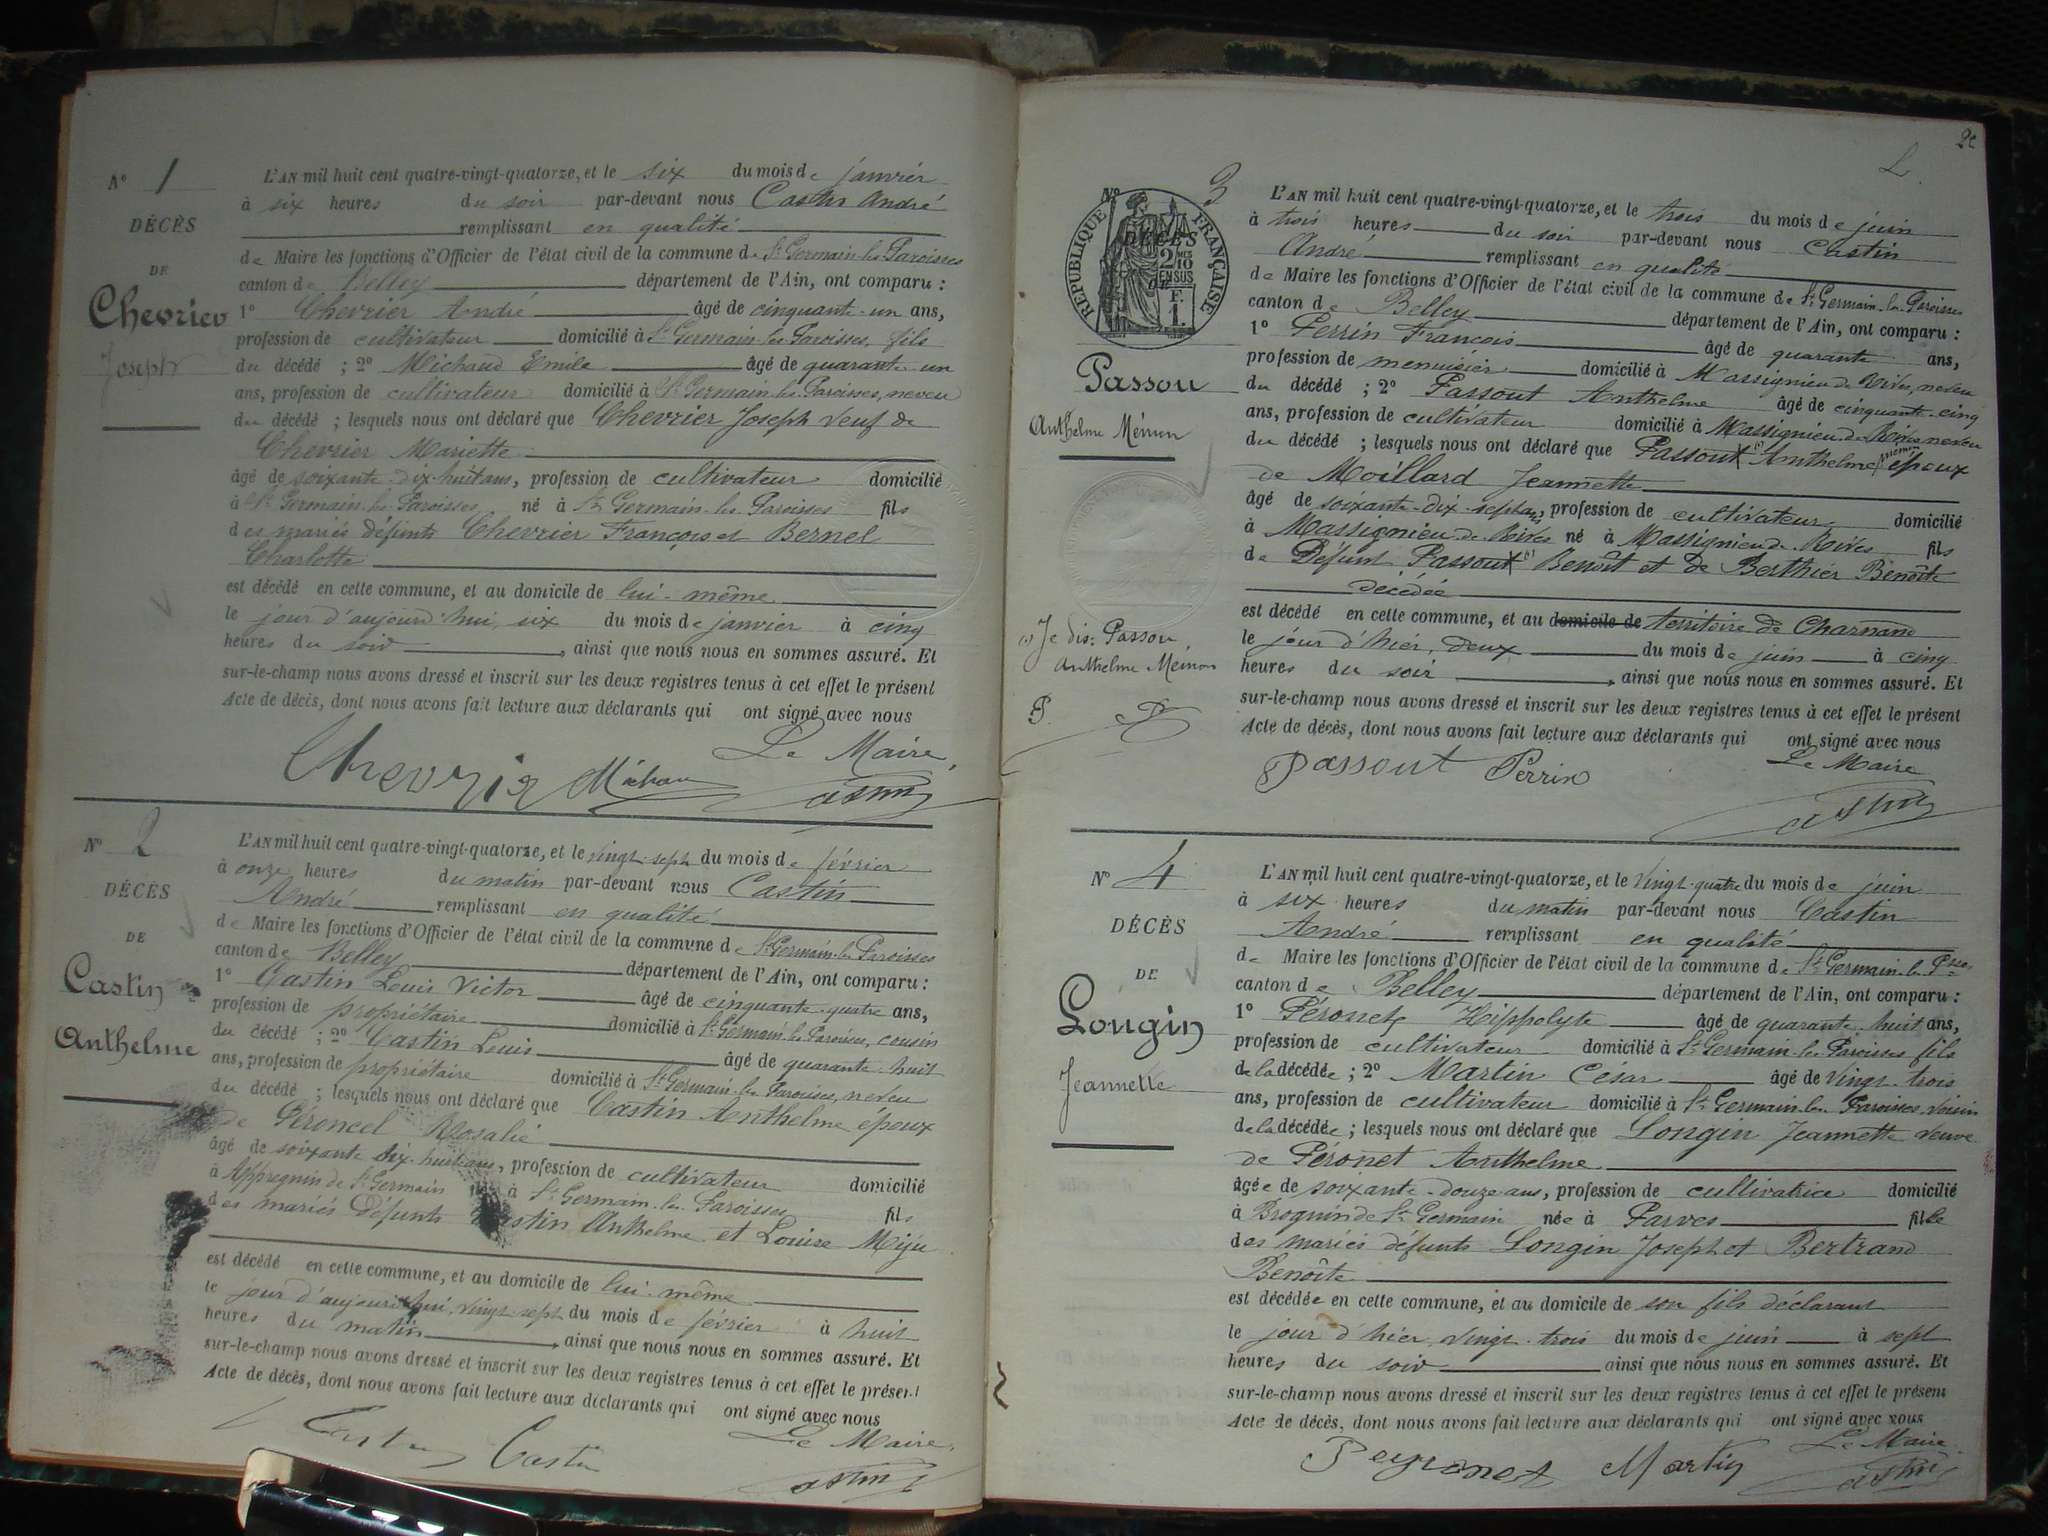 Nº 1
DÉCÈS
DE
Chevrier
Joseph
L'AN mil huit cent quatre-vingt-quatorze, et le six du mois de janvier
à six heures du soir par-devant nous Castin André
remplissant en qualité
de Maire les fonctions d'Officier de l'état civil de la commune de St Germain-les-Paroisses
canton de Belley département de l'Ain, ont comparu :
1º Chevrier André âgé de cinquante-un ans,
profession de cultivateur domicilié à St Germain-les-Paroisses, fils
du décédé ; 2º Michaud Emile âgé de quarante-un
ans, profession de cultivateur domicilié à St Germain-les-Paroisses, neveu
du décédé ; lesquels nous ont déclaré que Chevrier Joseph veuf de
Chevrier Mariette
âgé de soixante-dix-huit ans, profession de cultivateur domicilié
à St Germain-les-Paroisses né à St Germain-les-Paroisses fils
des mariés défunts Chevrier François et Bernel
Charlotte
est décédé en cette commune, et au domicile de lui-même
le jour d'aujourd'hui, six du mois de janvier à cinq
heures du soir, ainsi que nous nous en sommes assuré. Et
sur-le-champ nous avons dressé et inscrit sur les deux registres tenus à cet effet le présent
Acte de décès, dont nous avons fait lecture aux déclarants qui ont signé avec nous
Le Maire,
Chevrier Michau Castin
Nº 2
DÉCÈS
DE
Castin
Anthelme
L'AN mil huit cent quatre-vingt-quatorze, et le vingt-sept du mois de février
à onze heures du matin par-devant nous Castin
André remplissant en qualité
de Maire les fonctions d'Officier de l'état civil de la commune de St Germain-les-Paroisses
canton de Belley département de l'Ain, ont comparu :
1º Castin Louis Victor âgé de cinquante-quatre ans,
profession de propriétaire domicilié à St Germain-les-Paroisses, cousin
du décédé ; 2º Castin Louis âgé de quarante-huit
ans, profession de propriétaire domicilié à St Germain-les-Paroisses, neveu
du décédé ; lesquels nous ont déclaré que Castin Anthelme époux
de Rosalie
âgé de soixante dix-huit ans, profession de cultivateur domicilié
à Appregnin de St Germain né à St Germain-les-Paroisses fils
des mariés défunts Castin Anthelme et Louise Miju
est décédé en cette commune, et au domicile de lui-même
le jour d'aujourd'hui, vingt-sept du mois de février à huit
heures du matin, ainsi que nous nous en sommes assuré. Et
sur-le-champ nous avons dressé et inscrit sur les deux registres tenus à cet effet le présent
Acte de décès, dont nous avons fait lecture aux déclarants qui ont signé avec nous
Le Maire,
Castin Castin Castin
2e
Nº 3
RÉPUBLIQUE FRANÇAISE
DÉCÈS
DE
2 MES 10 EN SUS
F. 1.
Passou
Anthelme Meinon
L'AN mil huit cent quatre-vingt-quatorze, et le trois du mois de juin
à trois heures du soir par-devant nous Castin
André remplissant en qualité
de Maire les fonctions d'Officier de l'état civil de la commune de St Germain-les-Paroisses
canton de Belley département de l'Ain, ont comparu :
1º Perrin François âgé de quarante ans,
profession de menuisier domicilié à Massignieu de Rives, neveu
du décédé ; 2º Passout Anthelme âgé de cinquante-cinq
ans, profession de cultivateur domicilié à Massignieu de Rives neveu
du décédé ; lesquels nous ont déclaré que Passout Anthelme époux
de Moillard Jeannette
âgé de soixante-dix-sept ans, profession de cultivateur domicilié
à Massignieu de Rives né à Massignieu de Rives fils
de Défunt Passout Benoît et de Berthier Benoîte
décédée
est décédé en cette commune, et au domicile de territoire de Charnand
le jour d'hier, deux du mois de juin à cinq
heures du soir, ainsi que nous nous en sommes assuré. Et
sur-le-champ nous avons dressé et inscrit sur les deux registres tenus à cet effet le présent
Acte de décès, dont nous avons fait lecture aux déclarants qui ont signé avec nous
Le Maire
Passout Perrin Castin
(1) Je dis: Passou
Anthelme Meinon
P.
Nº 4
DÉCÈS
DE
Longin
Jeannette
L'AN mil huit cent quatre-vingt-quatorze, et le vingt-quatre du mois de juin
à six heures du matin par-devant nous Castin
André remplissant en qualité
de Maire les fonctions d'Officier de l'état civil de la commune de St Germain-les-Pses
canton de Belley département de l'Ain, ont comparu :
1º Péronet Hippolyte âgé de quarante-huit ans,
profession de cultivateur domicilié à St Germain-les-Paroisses fils
de la décédée ; 2º Martin César âgé de vingt-trois
ans, profession de cultivateur domicilié à St Germain-les-Paroisses, voisin
de la décédée ; lesquels nous ont déclaré que Longin Jeannette veuve
de Péronet Anthelme
âgée de soixante-douze ans, profession de cultivatrice domicilié
à Brognin de St Germain née à Parves fille
des mariés défunts Longin Joseph et Bertrand
Benoîte
est décédée en cette commune, et au domicile de son fils déclarant
le jour d'hier vingt-trois du mois de juin à sept
heures du soir ainsi que nous nous en sommes assuré. Et
sur-le-champ nous avons dressé et inscrit sur les deux registres tenus à cet effet le présent
Acte de décès, dont nous avons fait lecture aux déclarants qui ont signé avec nous
Le Maire
Peyronet Martin Castin